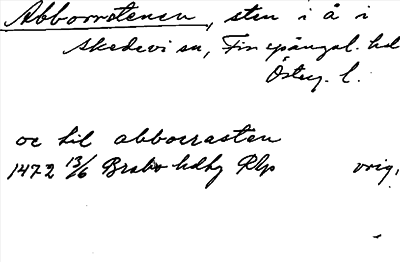 Abborrstenen, sten i å i
Skedevi sn, Finspångal. hd
Österg. l.
oc til abborrasten
1472 13/6 Brabo hdbg RAp orig.